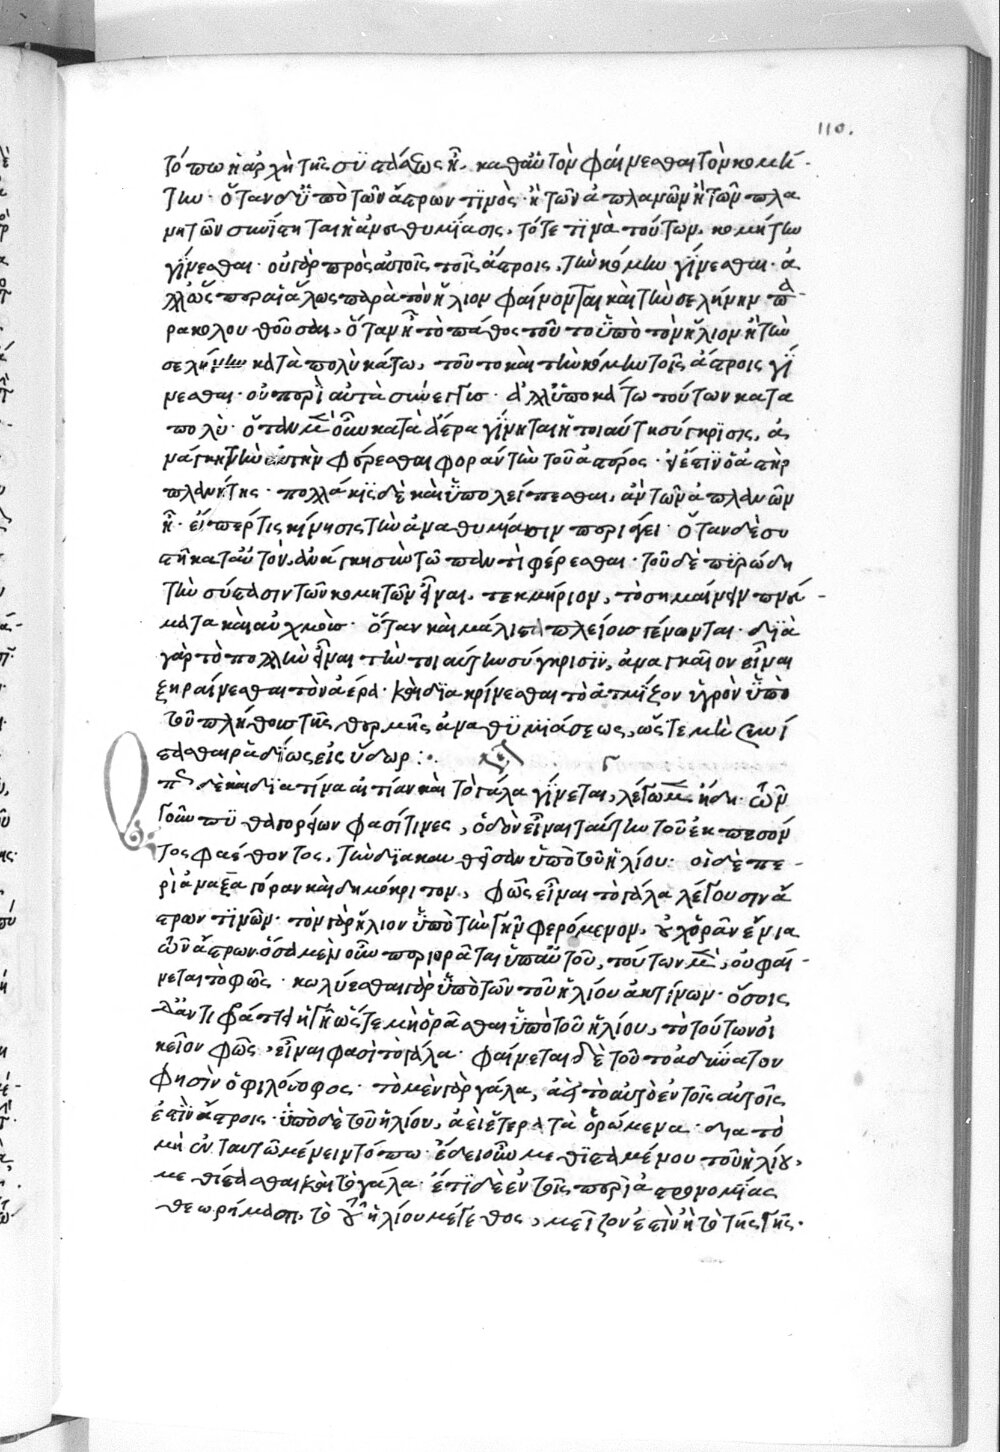 110.
τόπω ἡ ἀρχὴ τῆς συστάσεως ᾖ. καθ' αὑτὸν φαίνεσθαι τὸν κομή-
την. ὅταν δ' ὑπὸ τῶν ἄστρων τινὸς. ἢ τῶν ἀπλανῶν ἢ τῶν πλα
νητῶν συνίστηται ἡ ἀναθυμίασις, τότε τινὰ τούτων, κομήτην
γίνεσθαι. οὐ γὰρ πρὸς αὐτοῖς τοῖς ἄστροις, τὴν κόμην γίνεσθαι. ἀ
λλ' ὡς περ αἱ ἅλως παρὰ τὸν ἥλιον φαίνονται καὶ τὴν σελήνην πα-
ρακολουθοῦσαι, ὅταν ᾖ τὸ πάθος τοῦτο ὑπὸ τὸν ἥλιον ἢ τὴν
σελήνην κατὰ πολὺ κάτω, τοῦτο καὶ τὴν κόμην τοῖς ἄστροις γί
νεσθαι. οὐ περὶ αὐτὰ συνεγγυς. ἀλλ' ὑποκάτω τούτων κατα
πολὺ. ὅταν μὲν οὖν κατὰ ἀέρα γίνηται ἡ τοιαύτη σύγκρισις, ἀ
νάγκη τὴν αὐτὴν φέρεσθαι φορὰν τὴν τοῦ ἀέρος.
πλανήτης. πολλάκις δὲ καὶ ὑπολείπεσθαι, ἂν τῶν ἀπλανῶν
ᾖ. εἴπερ τις κίνησις τὴν ἀναθυμίασιν περιάγει. ὅταν δὲ συ
στῇ κατ' αὐτὸν, ἀνάγκη σὺν τῷ παντὶ φέρεσθαι. τοῦ δὲ πυρώδη
τὴν σύστασιν τῶν κομητῶν εἶναι, τεκμήριον, τὸ σημαίνειν πνεύ-
ματα καὶ αὐχμοὺς. ὅταν καὶ μάλιστα πλείους γένωνται. διὰ
γὰρ τὸ πολλὴν εἶναι τὴν τοιαύτην σύγκρισιν, ἀναγκαῖον εἶναι
ξηραίνεσθαι τὸν ἀέρα. καὶ διακρίνεσθαι τὸ ἀτμίζον ὑγρὸν ὑπὸ
τοῦ πλήθους τῆς θερμῆς ἀναθυμιάσεως, ὥστε μὴ συνί
στασθαι ῥαδίως εἰς ὕδωρ :.
Ὅπως δὲ καὶ διὰ τίνα αἰτίαν καὶ τὸ γάλα γίνεται, λέγωμεν ἤδη. τῶν
γοῦν πυθαγορείων φασί τινες, ὁδὸν εἶναι ταύτην τοῦ ἐκπεσόν
τος φαέθοντος, τὴν διακαυθεῖσαν ὑπὸ τοῦ ἡλίου. οἱ δὲ πε-
ρὶ ἀναξαγόραν καὶ δημόκριτον, φῶς εἶναι τὸ γάλα λέγουσιν ἄ
στρων τινῶν. τὸν γὰρ ἥλιον ὑπὸ τὴν γῆν φερόμενον, οὐχ ὁρᾶν ἔνια
τῶν ἄστρων. ὅσα μὲν οὖν περιορᾶται ὑπ' αὐτοῦ, τούτων μὲν, οὐ φαί-
νεται τὸ φῶς. κωλύεσθαι γὰρ ὑπὸ τῶν τοῦ ἡλίου ἀκτίνων. ὅσοις
δ' ἀντιφράττει ἡ γῆ ὥστε μὴ ὁρᾶσθαι ὑπὸ τοῦ ἡλίου, τὸ τούτων οἰ
κεῖον φῶς, εἶναι φασὶ τὸ γάλα. φαίνεται δὲ τοῦτο ἀδύνατον
φησὶν ὁ φιλόσοφος. τὸ μὲν γὰρ γάλα, ἀεὶ τὸ αὐτὸ ἐν τοῖς αὐτοῖς
ἐστὶν ἄστροις. ὑπὸ δὲ τοῦ ἡλίου, ἀεὶ ἕτερα τὰ ὁρώμενα. διὰ τὸ
μὴ ἐν ταυτῷ μένειν τόπω. ἔδει οὖν μεθισταμένου τοῦ ἡλίου,
μεθίστασθαι καὶ τὸ γάλα. ἔτι δὲ ἐν τοῖς περὶ ἀστρονομίας
θεωρήμασι, τὸ τοῦ ἡλίου μέγεθος, μεῖζον ἐστὶν ἢ τὸ τῆς γῆς.